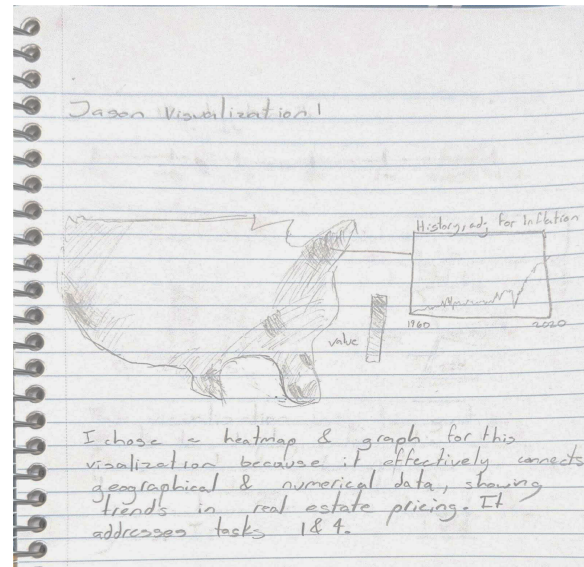 Jason Visualization 1
History, adj. for Inflation
value
1960
2020
I chose a heatmap & graph for this
visalization because it effectively connects
geographical & numerical data, showing
trends in real estate pricing. It
addresses tasks 1 & 4.